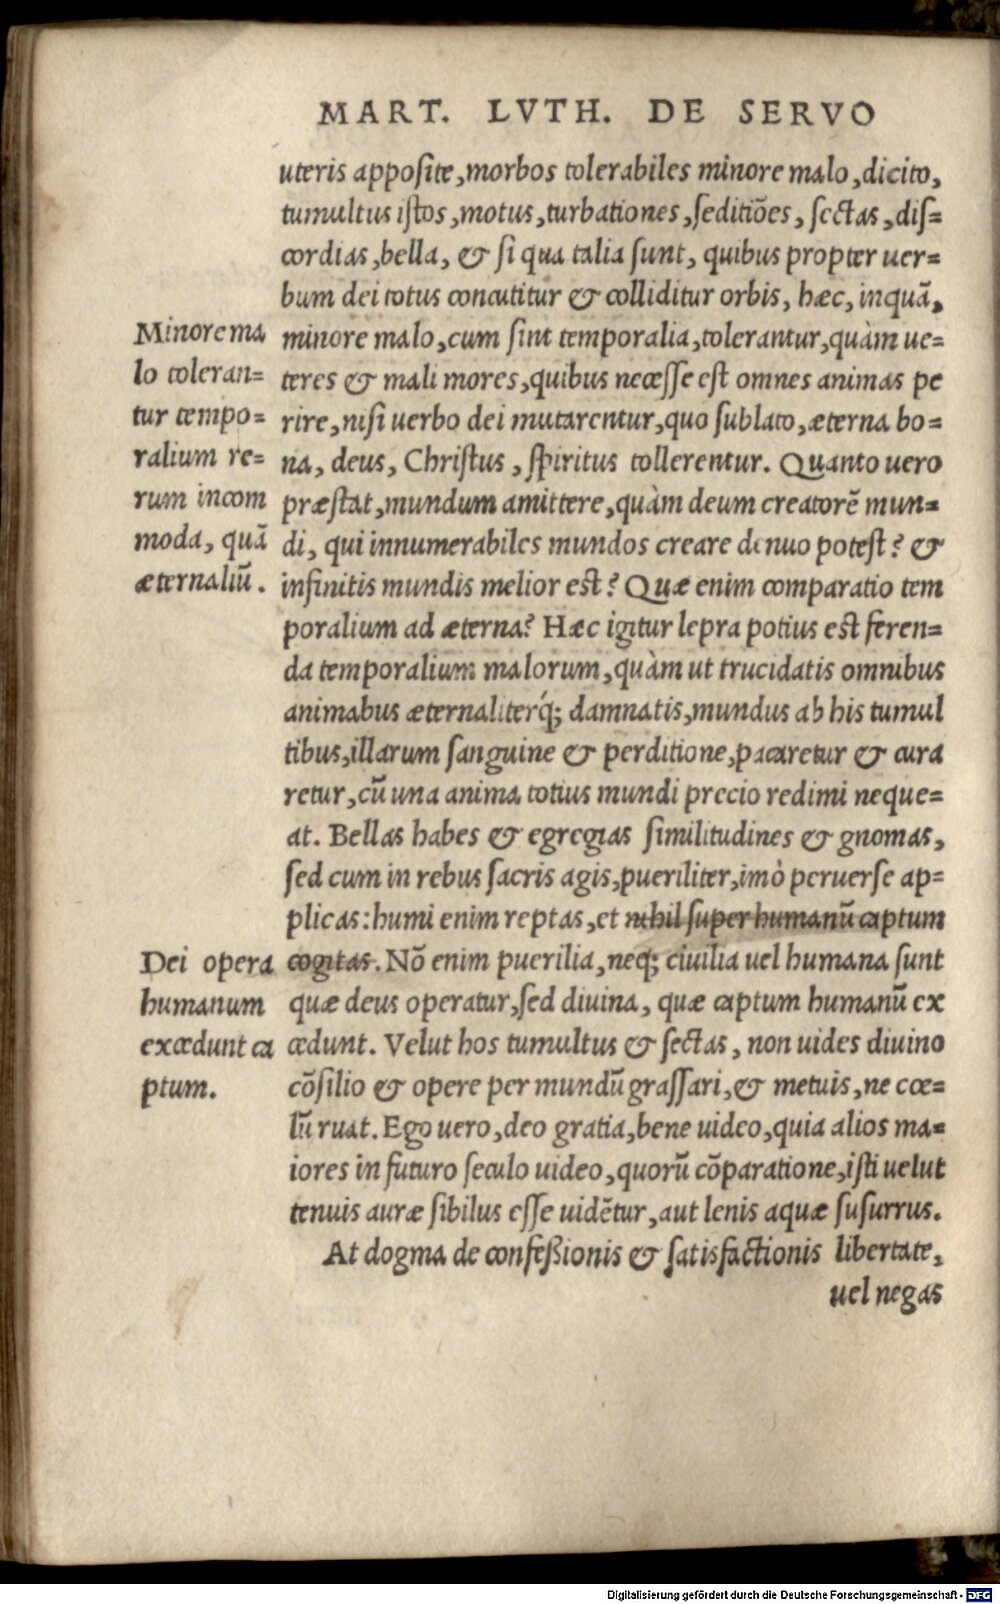 MART. LVTH. DE SERVO
uteris apposite, morbos tolerabiles minore malo, dicito,
tumultus istos, motus, turbationes, seditiões, sectas, dis=
cordias, bella, & si qua talia sunt, quibus propter uer=
bum dei totus concutitur & colliditur orbis, hæc, inquā,
minore malo, cum sint temporalia, tolerantur, quàm ue=
teres & mali mores, quibus necesse est omnes animas pe
rire, nisi uerbo dei mutarentur, quo sublato, æterna bo=
na, deus, Christus, spiritus tollerentur. Quanto uero
præstat, mundum amittere, quàm deum creatorē mun=
di, qui innumerabiles mundos creare denuo potest? &
infinitis mundis melior est? Quæ enim comparatio tem
poralium ad æterna? Hæc igitur lepra potius est feren=
da temporalium malorum, quàm ut trucidatis omnibus
animabus æternaliterq́; damnatis, mundus ab his tumul
tibus, illarum sanguine & perditione, pacaretur & cura
retur, cū una anima totius mundi precio redimi neque=
at. Bellas habes & egregias similitudines & gnomas,
sed cum in rebus sacris agis, pueriliter, imò peruerse ap=
plicas: humi enim reptas, et nihil super humanū captum
cogitas. Nō enim puerilia, neq; ciuilia uel humana sunt
quæ deus operatur, sed diuina, quæ captum humanū ex
cedunt. Velut hos tumultus & sectas, non uides diuino
cōsilio & opere per mundū grassari, & metuis, ne cœ=
lū ruat. Ego uero, deo gratia, bene uideo, quia alios ma=
iores in futuro seculo uideo, quorū cōparatione, isti uelut
tenuis auræ sibilus esse uidētur, aut lenis aquæ susurrus.
At dogma de confeßionis & satisfactionis libertate,
uel negas
Minore ma
lo toleran=
tur tempo=
ralium re=
rum incom
moda, quā
æternaliū.
Dei opera
humanum
excedunt ca
ptum.
Digitalisierung gefördert durch die Deutsche Forschungsgemeinschaft - DFG